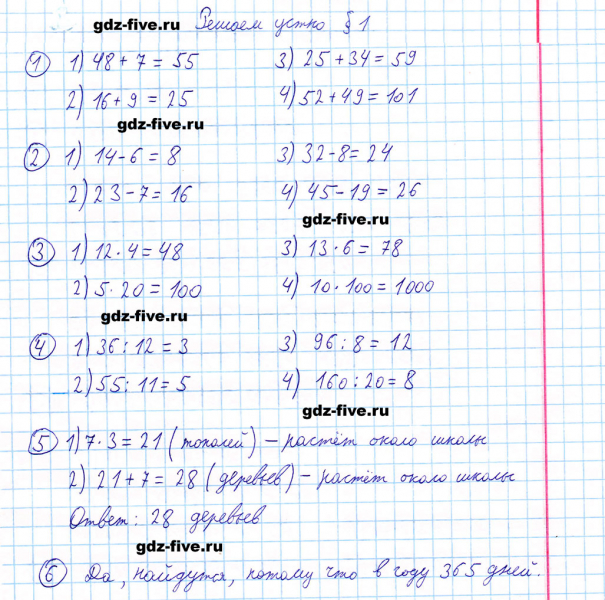 gdz-five.ru Решаем устно § 1
① 1) 48 + 7 = 55 3) 25 + 34 = 59
2) 16 + 9 = 25 4) 52 + 49 = 101
gdz-five.ru
② 1) 14 - 6 = 8 3) 32 - 8 = 24
2) 23 - 7 = 16 4) 45 - 19 = 26
gdz-five.ru
③ 1) 12 · 4 = 48 3) 13 · 6 = 78
2) 5 · 20 = 100 4) 10 · 100 = 1000
gdz-five.ru
④ 1) 36 : 12 = 3 3) 96 : 8 = 12
2) 55 : 11 = 5 4) 160 : 20 = 8
gdz-five.ru
⑤ 1) 7 · 3 = 21 (тополей) – растёт около школы
2) 21 + 7 = 28 (деревьев) – растёт около школы
Ответ: 28 деревьев
gdz-five.ru
⑥ Да, найдутся, потому что в году 365 дней.